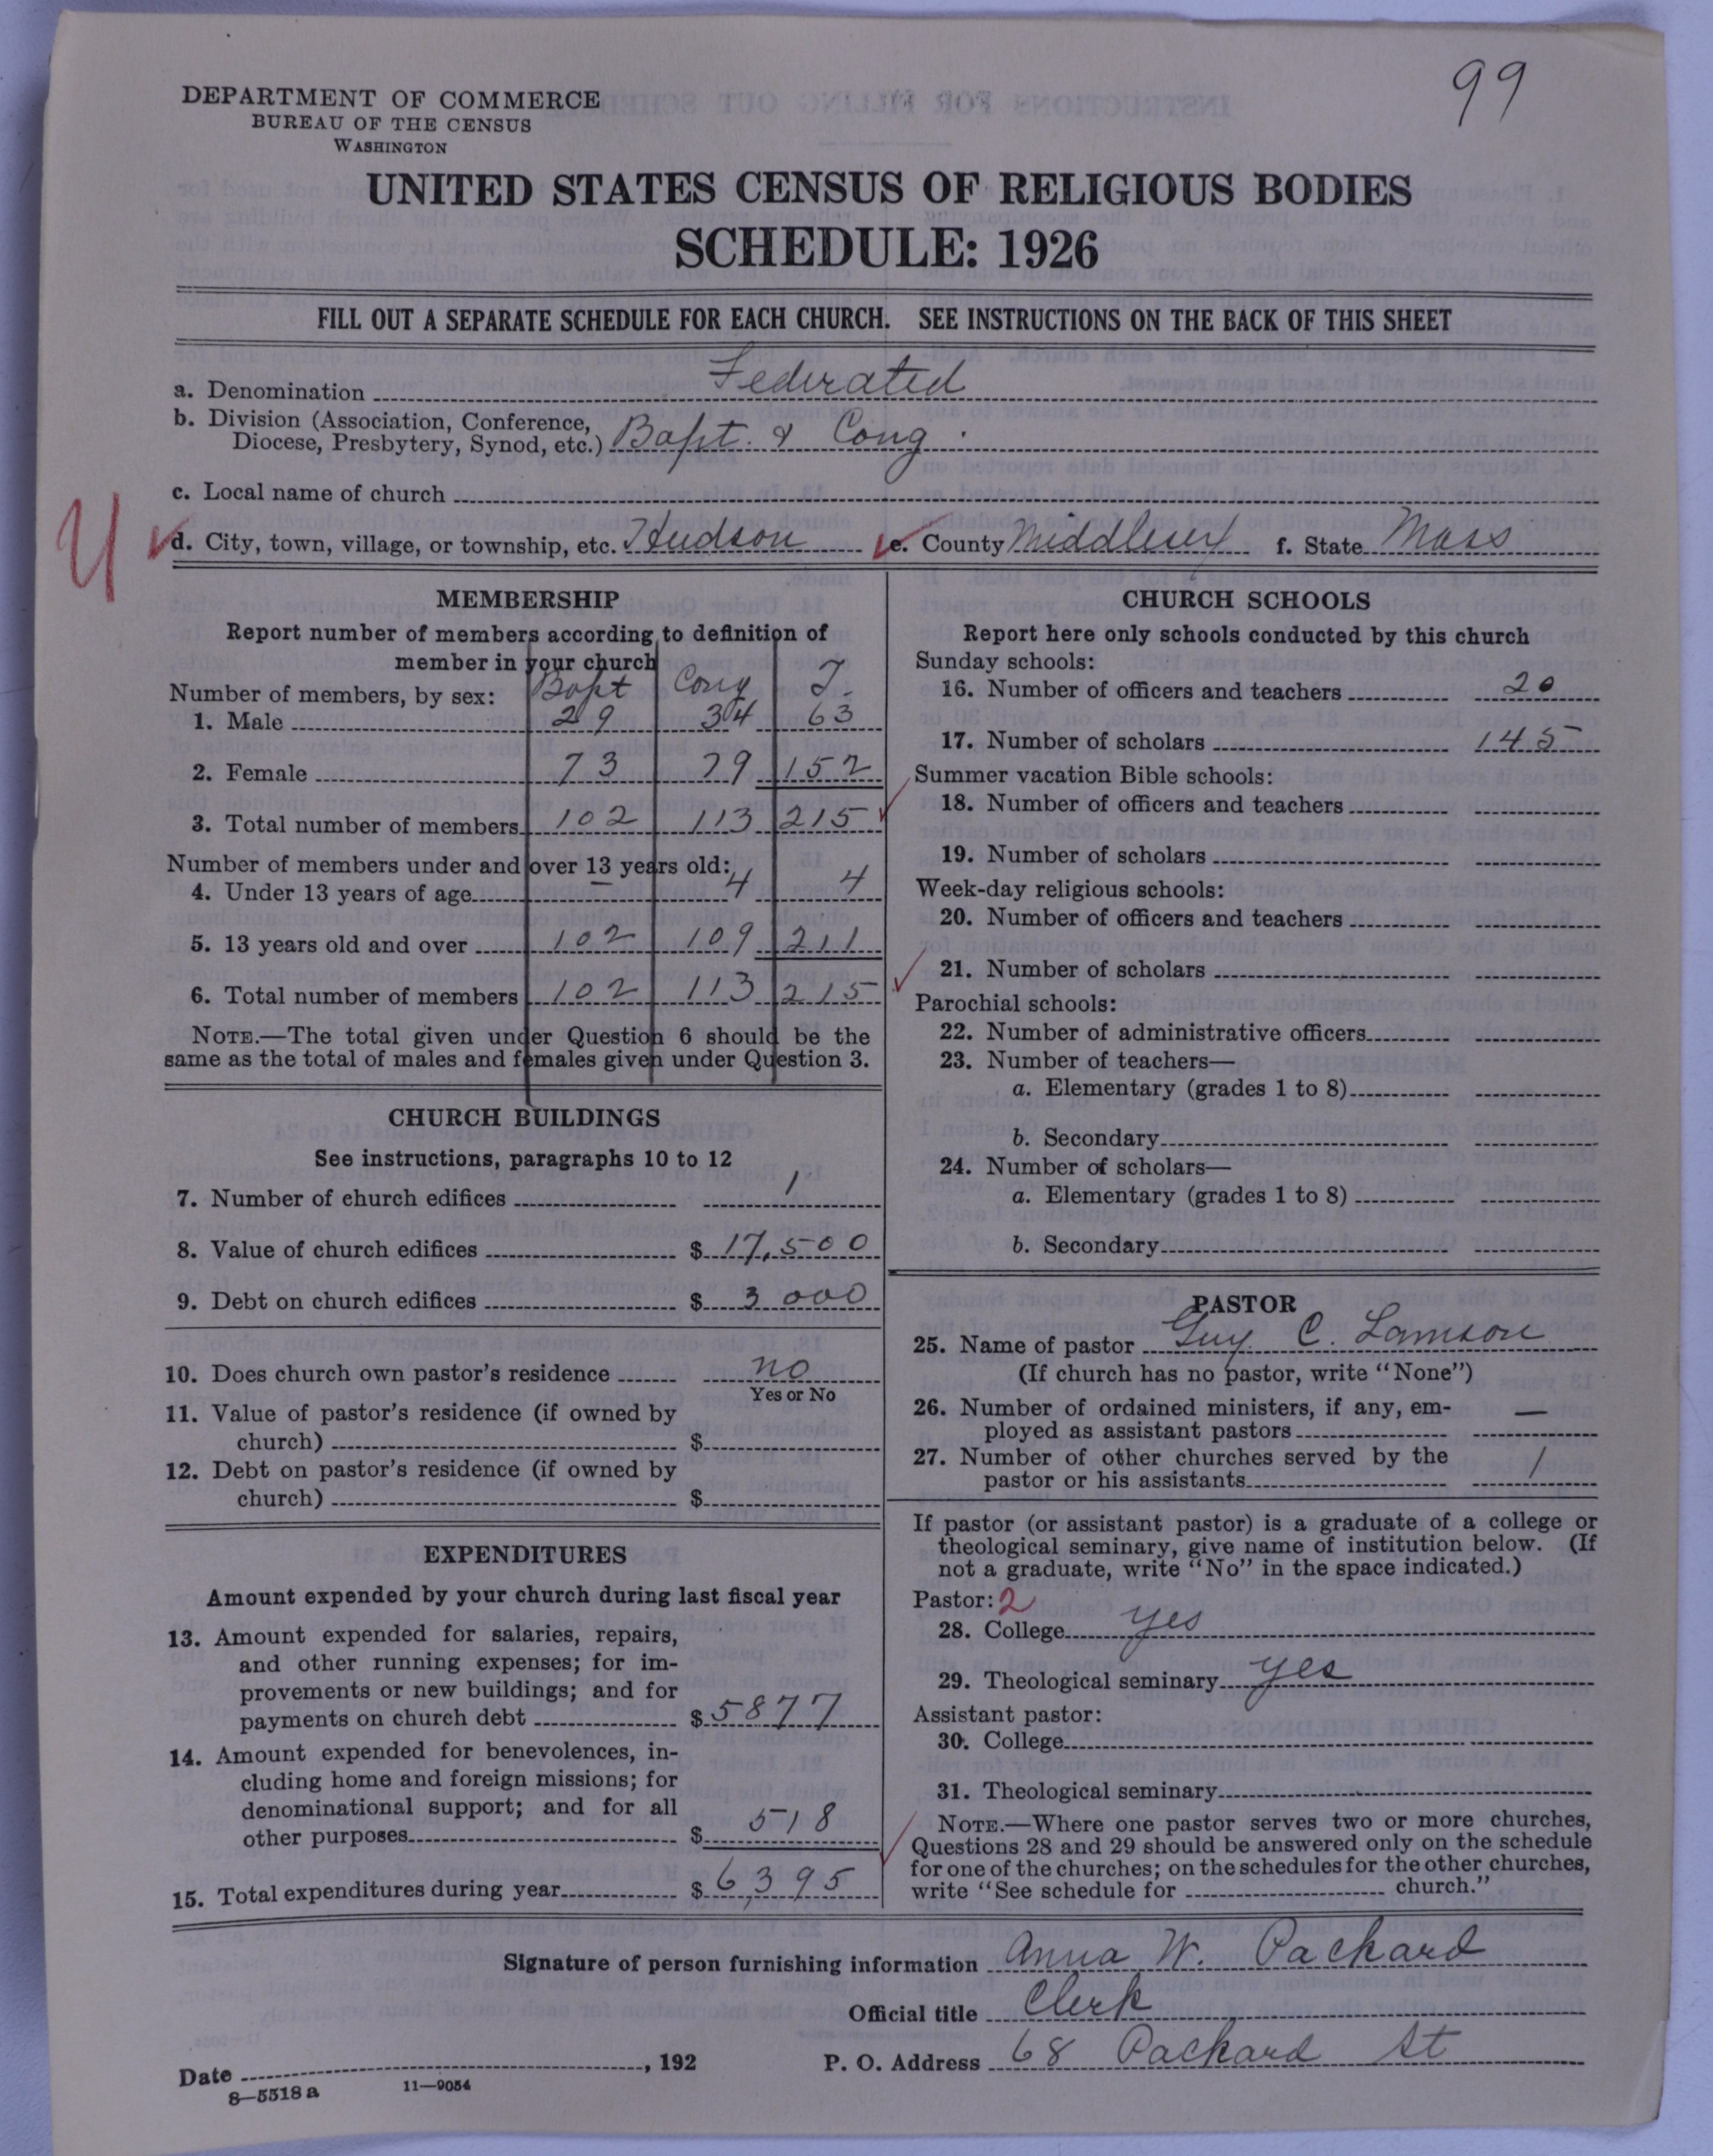 99
DEPARTMENT OF COMMERCE
BUREAU OF THE CENSUS
WASHINGTON
UNITED STATES CENSUS OF RELIGIOUS BODIES
SCHEDULE: 1926
FILL OUT A SEPARATE SCHEDULE FOR EACH CHURCH. SEE INSTRUCTIONS ON THE BACK OF THIS SHEET
a. Denomination Federated
b. Division (Association, Conference,
Diocese, Presbytery, Synod, etc.) Bapt. & Cong.
c. Local name of church
d. City, town, village, or township, etc. Hudson e. County Middlesex f. State Mass
MEMBERSHIP
Report number of members according to definition of
member in your church
Number of members, by sex: Bapt Cong T.
1. Male 29 34 63
2. Female 73 79 152
3. Total number of members 102 113 215
Number of members under and over 13 years old:
4. Under 13 years of age — 4 4
5. 13 years old and over 102 109 211
6. Total number of members 102 113 215
NOTE.—The total given under Question 6 should be the
same as the total of males and females given under Question 3.
CHURCH BUILDINGS
See instructions, paragraphs 10 to 12
7. Number of church edifices 1
8. Value of church edifices $ 17,500
9. Debt on church edifices $ 3 000
10. Does church own pastor's residence no
Yes or No
11. Value of pastor's residence (if owned by
church) $
12. Debt on pastor's residence (if owned by
church) $
EXPENDITURES
Amount expended by your church during last fiscal year
13. Amount expended for salaries, repairs,
and other running expenses; for im-
provements or new buildings; and for
payments on church debt $ 5877
14. Amount expended for benevolences, in-
cluding home and foreign missions; for
denominational support; and for all
other purposes $ 518
15. Total expenditures during year $ 6,395
CHURCH SCHOOLS
Report here only schools conducted by this church
Sunday schools:
16. Number of officers and teachers 20
17. Number of scholars 145
Summer vacation Bible schools:
18. Number of officers and teachers
19. Number of scholars
Week-day religious schools:
20. Number of officers and teachers
21. Number of scholars
Parochial schools:
22. Number of administrative officers
23. Number of teachers—
a. Elementary (grades 1 to 8)
b. Secondary
24. Number of scholars—
a. Elementary (grades 1 to 8)
b. Secondary
PASTOR
25. Name of pastor Guy C. Lamson
(If church has no pastor, write "None")
26. Number of ordained ministers, if any, em-
ployed as assistant pastors —
27. Number of other churches served by the
pastor or his assistants 1
If pastor (or assistant pastor) is a graduate of a college or
theological seminary, give name of institution below. (If
not a graduate, write "No" in the space indicated.)
Pastor: 2
28. College yes
29. Theological seminary yes
Assistant pastor:
30. College
31. Theological seminary
NOTE.—Where one pastor serves two or more churches,
Questions 28 and 29 should be answered only on the schedule
for one of the churches; on the schedules for the other churches,
write "See schedule for church."
Signature of person furnishing information Anna W. Packard
Official title Clerk
Date , 192 P. O. Address 68 Packard St
8—5518 a 11—9054